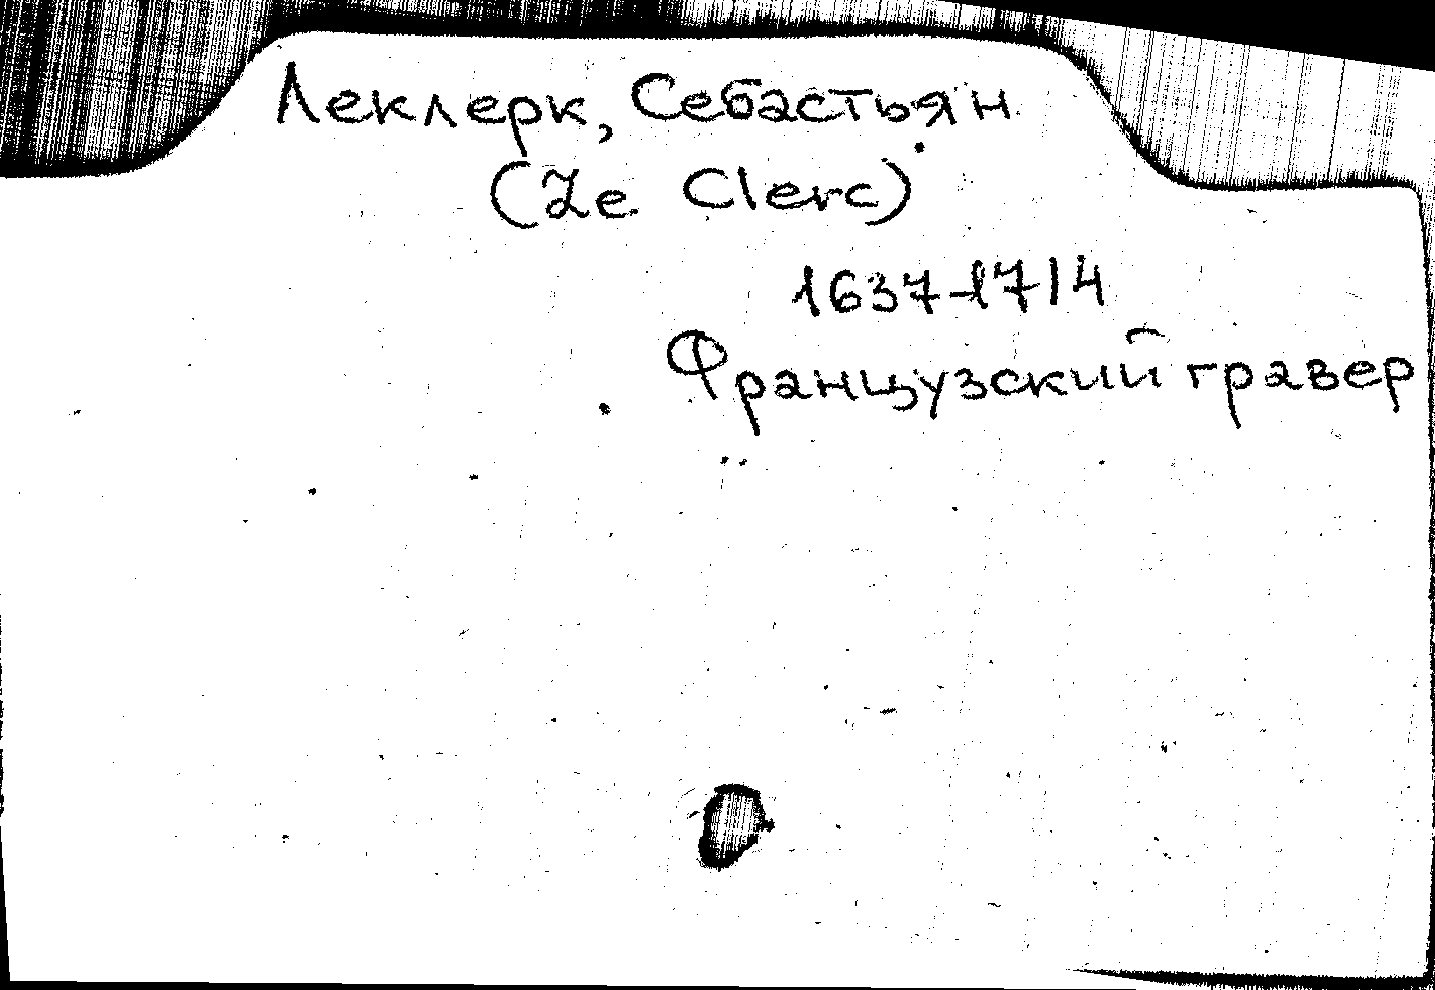 Леклерк, Себастьян
(Le Clerc)
1637-1714
Французский гравер